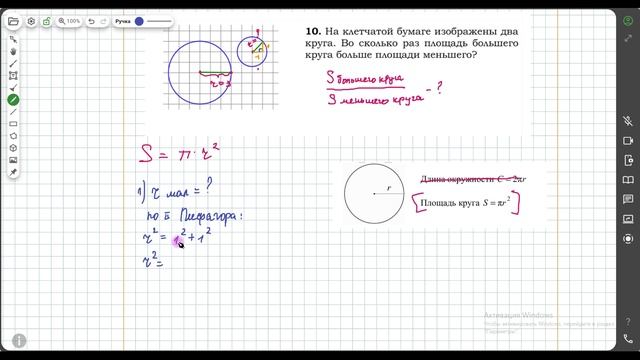 Ручка
100%
10. На клетчатой бумаге изображены два
круга. Во сколько раз площадь большего
круга больше площади меньшего?
r=3
S большего круга
S меньшего круга
- ?
S = π · r²
1) r мал = ?
по т Пифагора:
r² = 1² + 1²
r² =
r
Длина окружности C = 2πr
Площадь круга S = πr²
Активация Windows
Чтобы активировать Windows, перейдите в раздел
"Параметры".